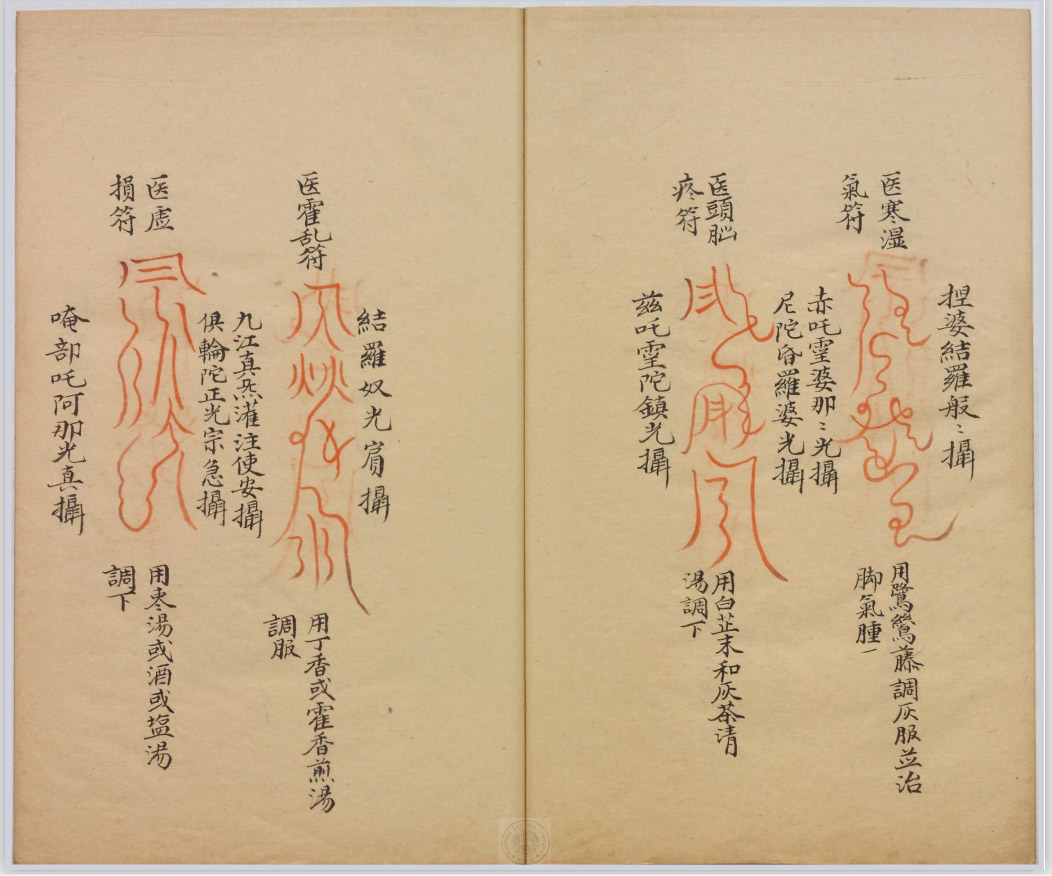 医寒湿
氣符
捏婆結羅般〻攝
赤吒霊婆那〻光攝
用鷺鷥藤調灰服並治
脚氣腫一
医頭脳
疼符
尼陀昏羅婆光攝
茲吒霊陀鎮光攝
用白芷末和灰茶清
湯調下
医霍乱符
結羅奴光賔攝
九江真炁灌注使安攝
用丁香或霍香煎湯
調服
医虛
損符
俱輪陀正光宗急攝
唵部吒阿那光真攝
用枣湯或酒或塩湯
調下